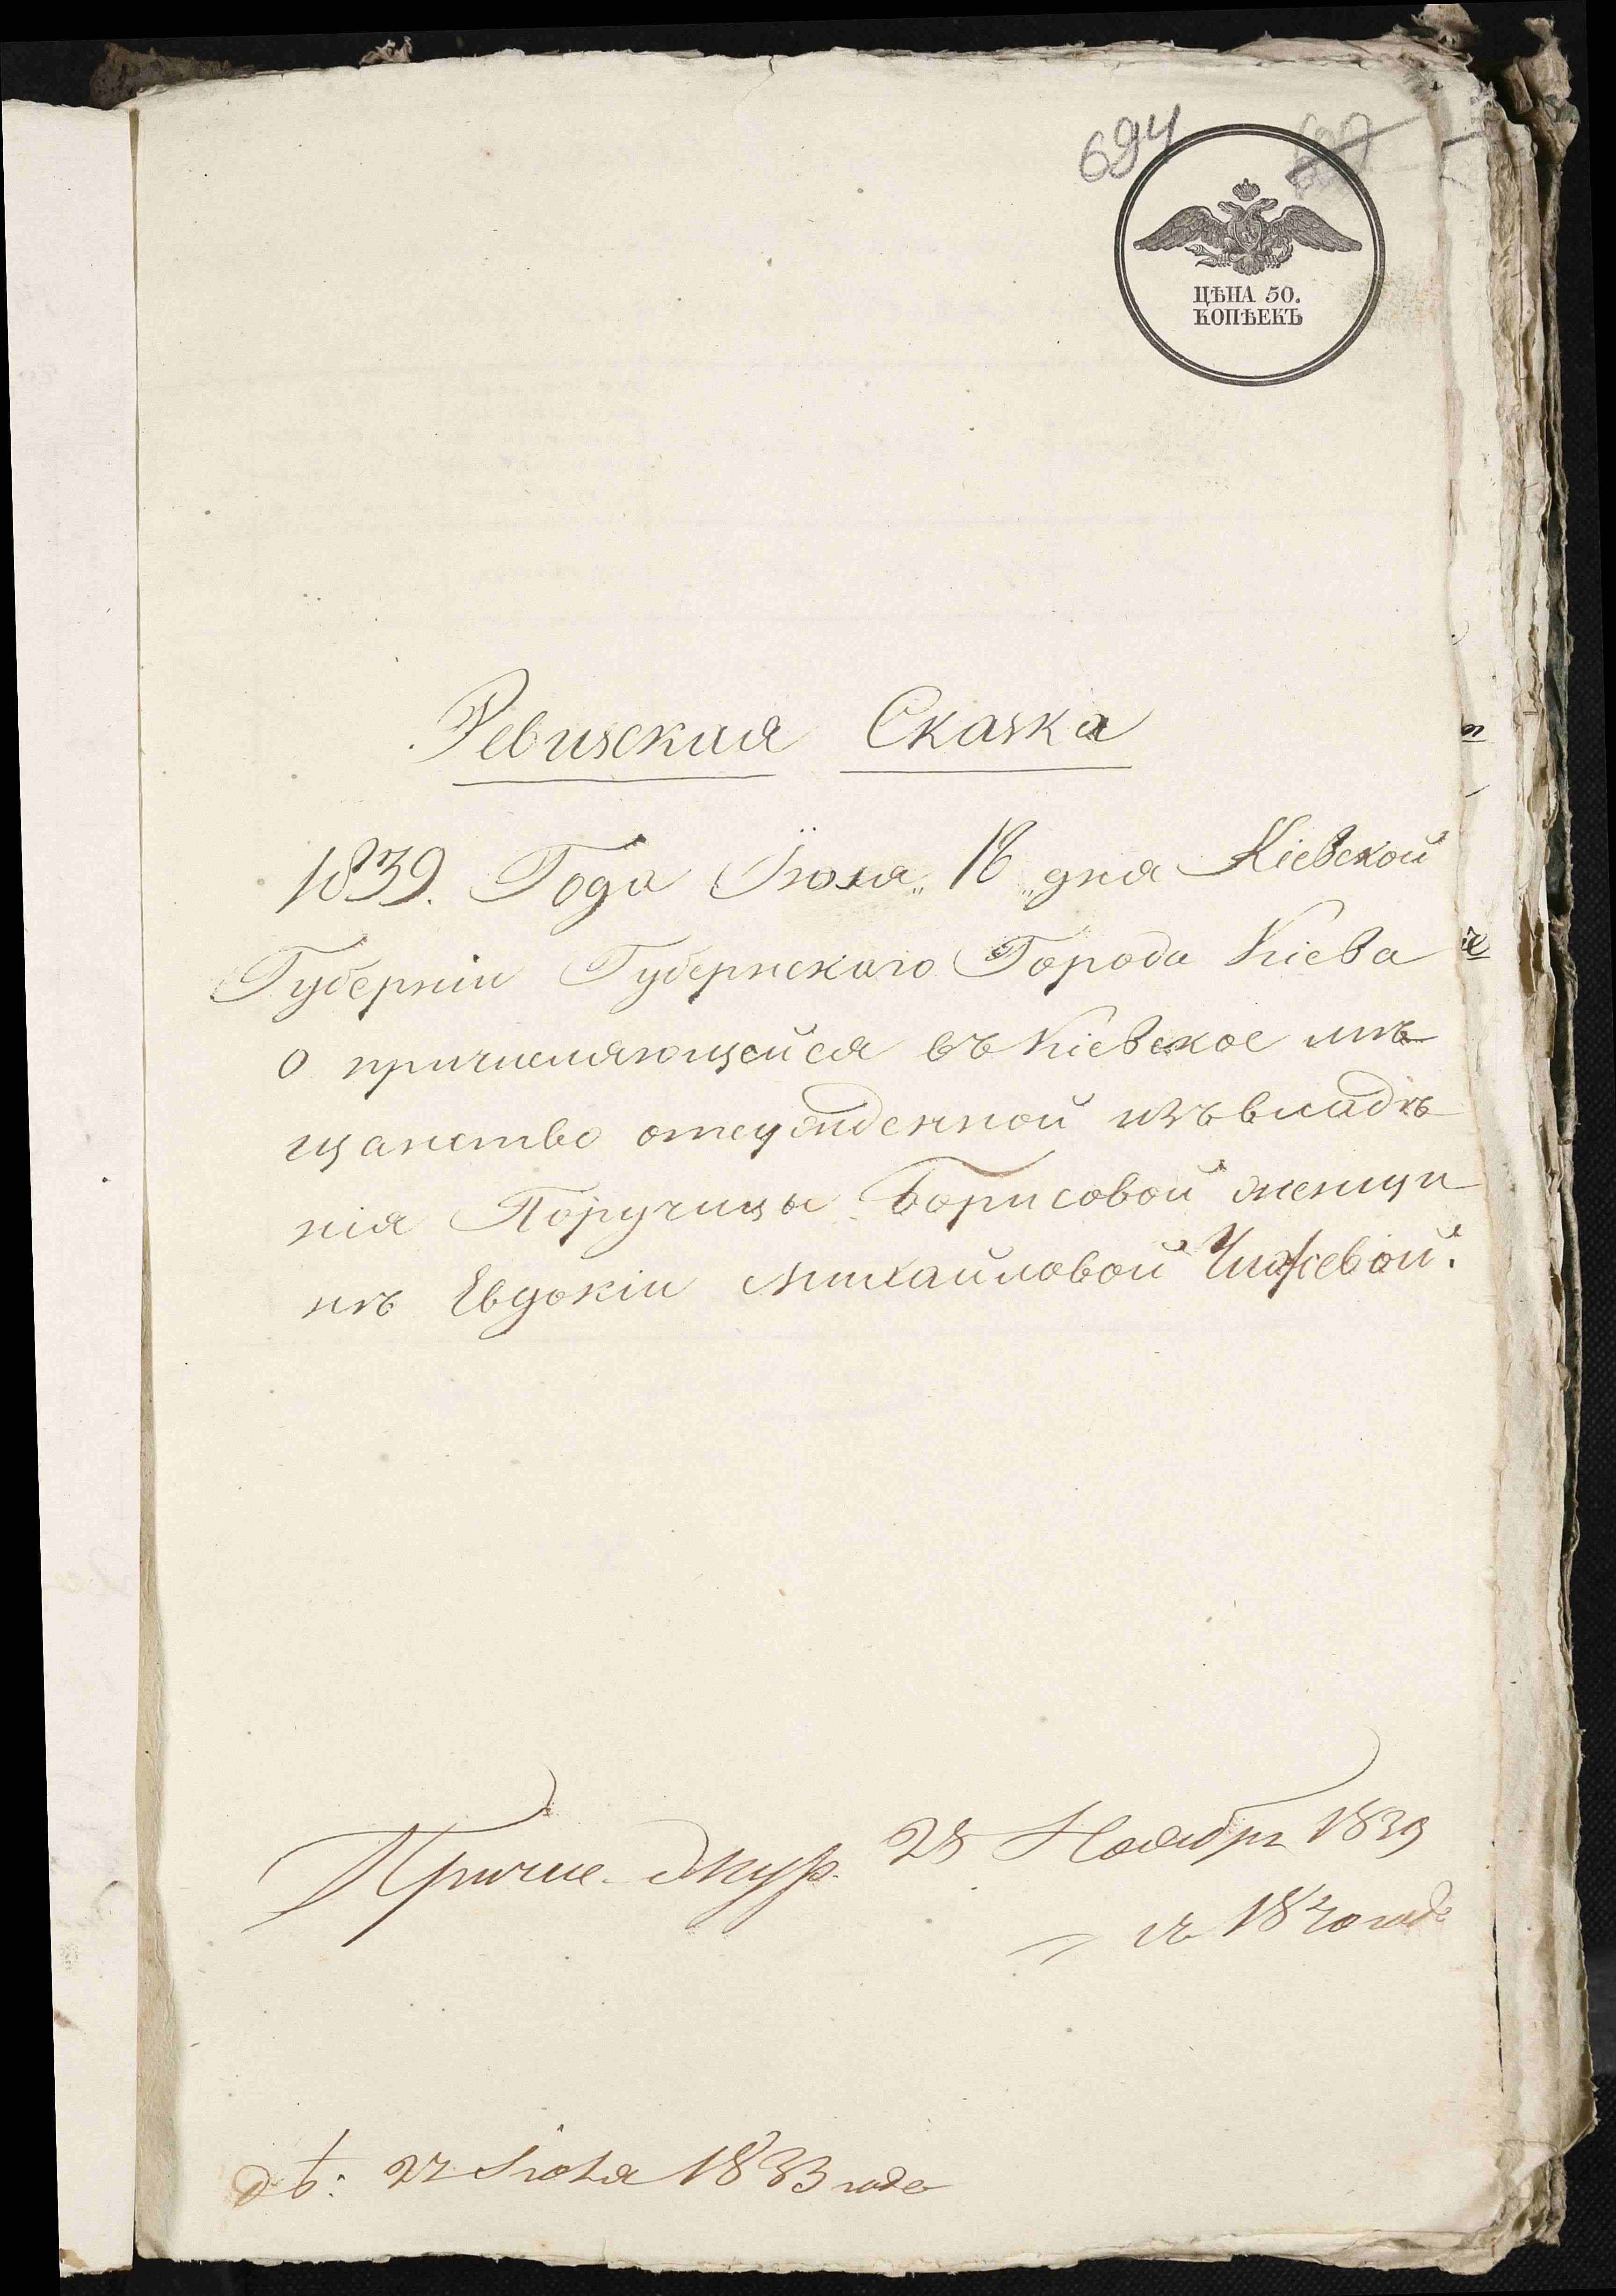 694
ЦѢНА 50.
КОПѢЕКЪ
Ревизская Сказка
1839. Года Іюля „18„ дня Кіевской
Губерніи Губернскаго Города Кіева
о причисляющейся въ Кіевское мѣ
щанство отсужденной изъ владѣ
нія Поручицы Борисовой женщи
нѣ Евдокіи Михайловой Чижевой.
Причис. 28 Ноября 1839
съ 1840 года
22 Іюля 1833 года